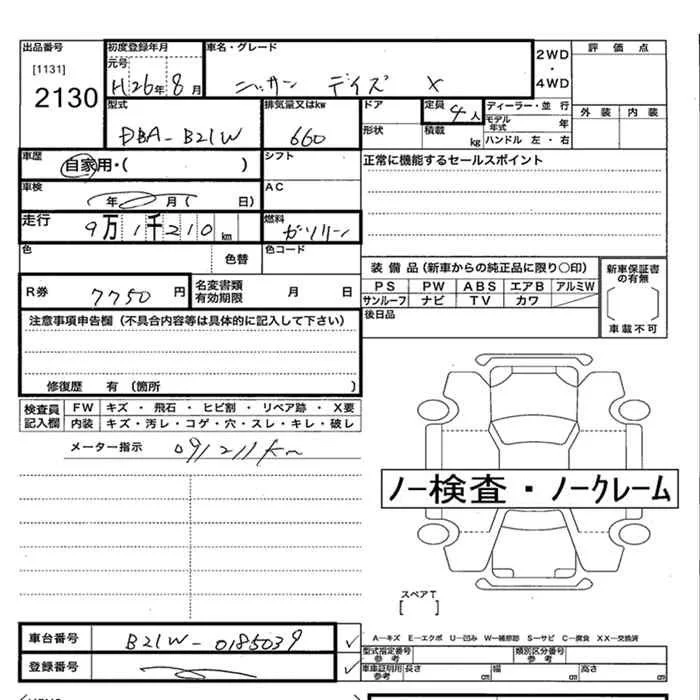 出品番号 初度登録年月 車名・グレード 2WD・4WD 評価点
[1131] 元号
2130 H26年8月 ニッサン デイズ X
型式 排気量又はkw ドア 定員 4人 ディーラー・並行 外装 内装
DBA-B21W 660 形状 積載 kg モデル年式 年
ハンドル 左・右
車歴 自家用・( ) シフト 正常に機能するセールスポイント
車検 年 月( 日) AC
走行 9万1千210km 燃料 ガソリン
色 色替 色コード
装備品(新車からの純正品に限り○印) 新車保証書の有無
R券 7750円 名変書類有効期限 月 日 PS PW ABS エアB アルミW
サンルーフ ナビ TV カワ
注意事項申告欄(不具合内容等は具体的に記入して下さい) 後日品 車載不可
修復歴 有(箇所 )
検査員記入欄 FW キズ・飛石・ヒビ割・リペア跡・X要
内装 キズ・汚レ・コゲ・穴・スレ・キレ・破レ
メーター指示 091211km
ノー検査・ノークレーム
スペアT
[ ]
車台番号 B21W-0185039 ✓ A―キズ E―エクボ U―凹み W―補修跡 S―サビ C―腐食 XX―交換済
型式指定番号 参考 類別区分番号 参考
登録番号 ✓ 車庫証明用 参考 長さ cm 幅 cm 高さ cm